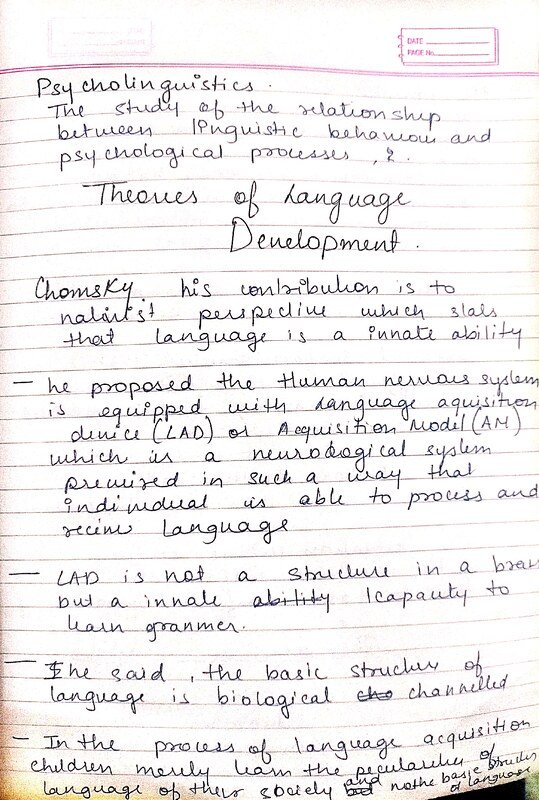 DATE
PAGE No.
Psycholinguistics.
The study of the relationship
between linguistic behaviour and
psychological processes, &.
Theories of Language
Development.
Chomsky his contribution is to
nativist perspective which stats
that language is a innate ability
– he proposed the Human nervous system
is equipped with Language aquisition
device (LAD) or Acquisition Model (AM)
which is a neurological system
premised in such a way that
individual is able to process and
recieve Language
– LAD is not a structure in a brain
but a innate ability /capacity to
learn grammer.
– he said, the basic structure of
language is biological channelled
– In the process of language acquisition
children merely learn the peculiarities of
language of their society and not the basic structure
of language